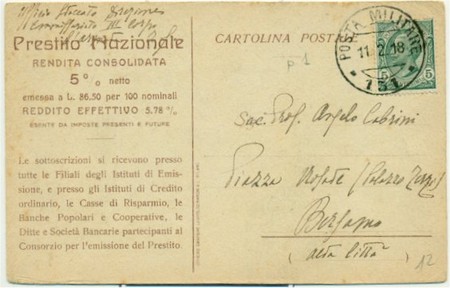 Prestito Nazionale
RENDITA CONSOLIDATA
5% netto
emessa a L. 86.50 per 100 nominali
REDDITO EFFETTIVO 5.78 %
ESENTE DA IMPOSTE PRESENTI E FUTURE
Le sottoscrizioni si ricevono presso
tutte le Filiali degli Istituti di Emis-
sione, e presso gli Istituti di Credito
ordinario, le Casse di Risparmio, le
Banche Popolari e Cooperative, le
Ditte e Società Bancarie partecipanti al
Consorzio per l'emissione del Prestito.
CARTOLINA POSTA
POSTA MILITARE
11.2.18
131
5
Sac. Prof. Angelo Cabrini
Piazza
Bergamo
(alta città)
12